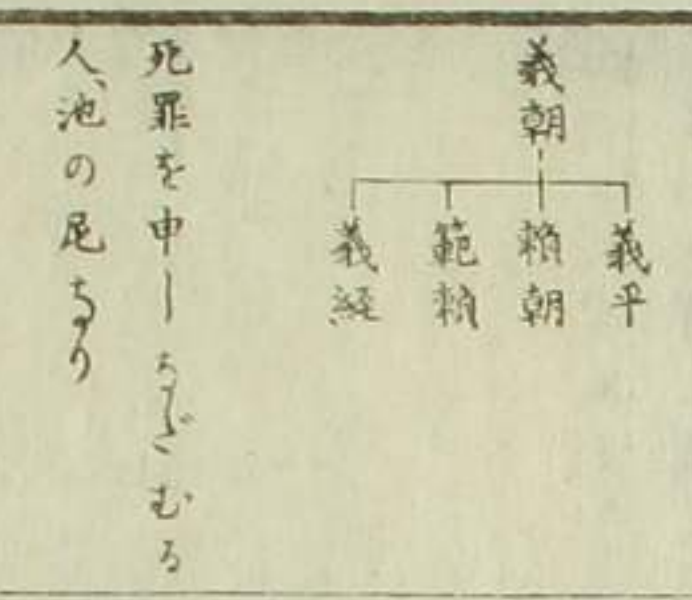 義朝
義平
頼朝
範頼
義経
死罪を申しなだむる
人、池の尼なり